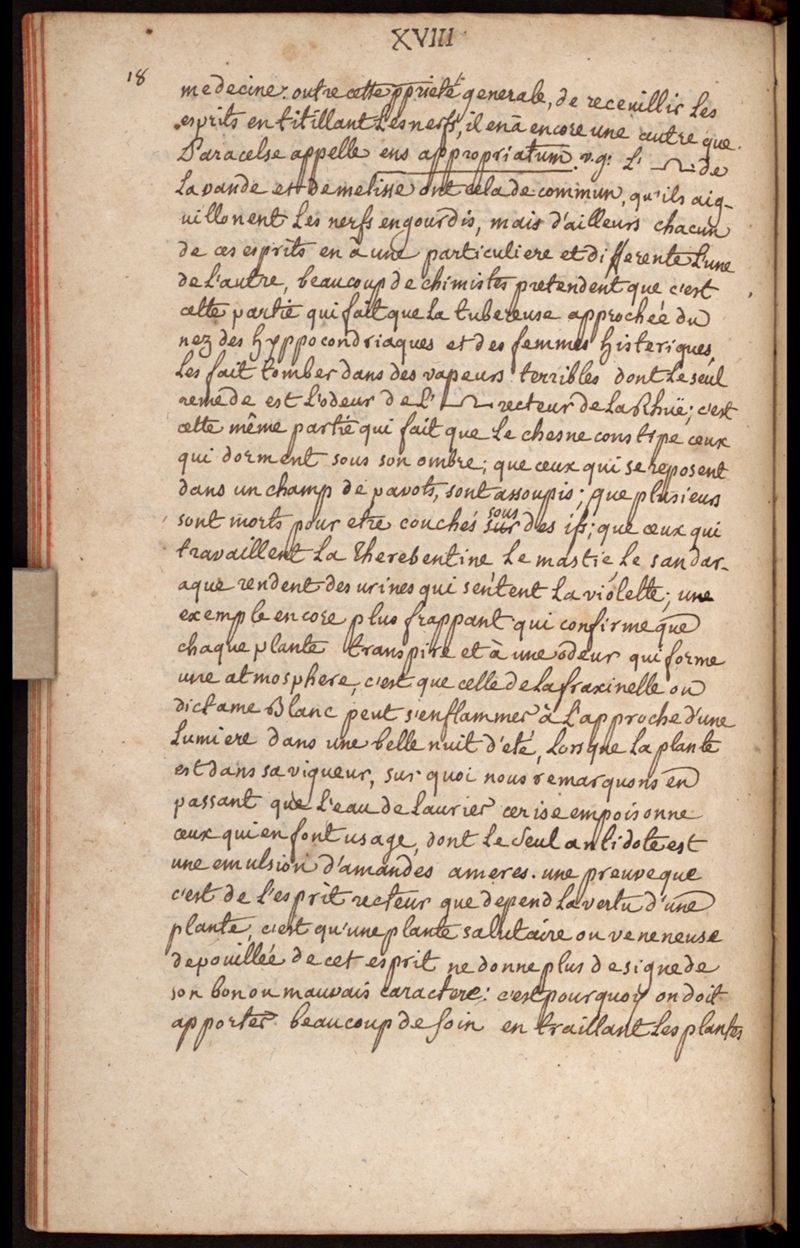 XVIII
18
medecine: outre cette pprieté generale, de receuillir les
esprits en titillant les nerfs, il en à encore une autre que
Paracelse appelle ens appropriatum. v.g. L' de
Lavande et de melisse ont cela de commun, qu'ils aig-
uillonent les nerfs engourdis, mais d'ailleurs chacun
de ces esprits en à une particuliere et differente l'une
de l'autre, beaucoup de chimistes pretendent que c'est
cette partie qui fait que la tubereuse approchée du
nez des hyppocondriaques et des femmes histeriques,
les fait tomber dans des vapeurs terribles dont le seul
remede est l'odeur de l' recteur de la Rhuë; c'est
cette même partie qui fait que le chesne constipe ceux
qui dorment sous son ombre; que ceux qui se reposent
dans un champ de pavots, sont assoupis; que plusieurs
sont morts pour etre couchés sous des ifs; que ceux qui
travaillent la therebentine le mastic le sandar-
aque rendent des urines qui sentent la violette; une
exemple encore plus frappant qui confirme que
chaque plante transpire et à une odeur qui forme
une atmosphere, c'est que celle de la fraxinelle ou
dictame Blanc peut s'enflammer à l'approche d'une
lumiere dans une belle nuit d'eté, lorsque la plante
est dans sa vigueur, sur quoi nous remarquons en
passant que l'eau de laurier cerise empoisonne
ceux qui en font usage, dont le seul antidote est
une emulsion d'amandes ameres. une preuve que
c'est de l'esprit recteur que depend la vertu d'une
plante, c'est qu'une plante salutaire ou veneneuse
depouillée de cet esprit ne donne plus de signe de
son bon ou mauvais caractere: c'est pourquoy on doit
apporter beaucoup de soin en traillant les plantes